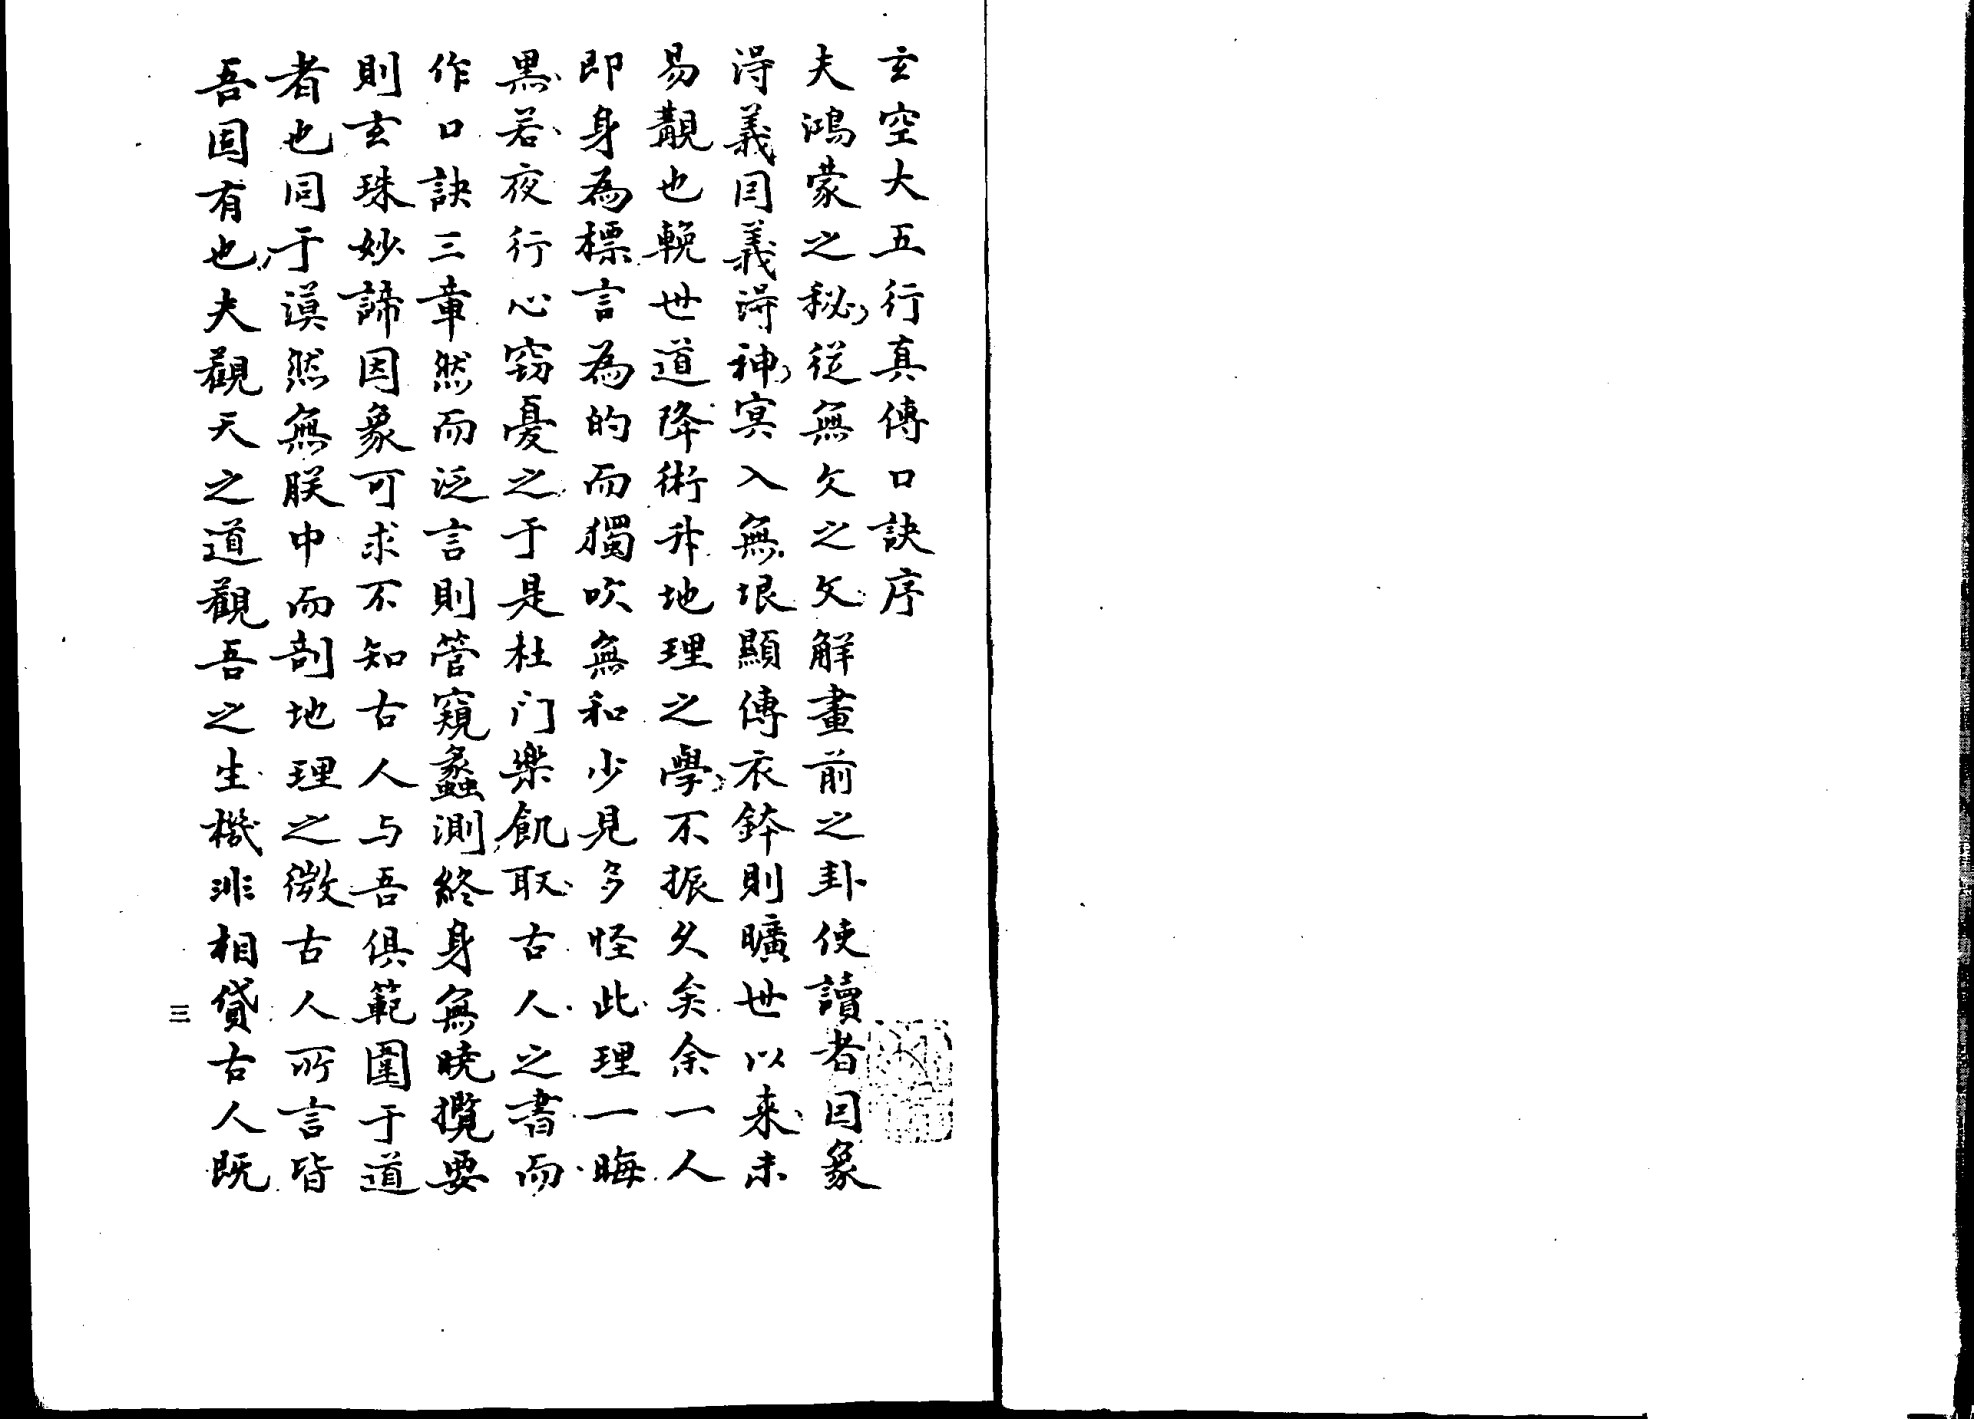 玄空大五行真傳口訣序
夫鴻蒙之秘從無文之文解畫前之卦使讀者因象
得義因義得神冥入無垠顯傳衣鉢則曠世以来未
易觀也輓世道降術升地理之學不振久矣余一人
即身為標言為的而獨吹無和少見多怪此理一晦
黑若夜行心窃憂之于是杜门樂飢取古人之書而
作口訣三章然而泛言則管窺蠡測終身無曉攬要
則玄珠妙諦因象可求不知古人与吾俱範圍于道
者也同于漠然無朕中而剖地理之微古人所言皆
吾固有也夫觀天之道觀吾之生機非相貸古人既
三